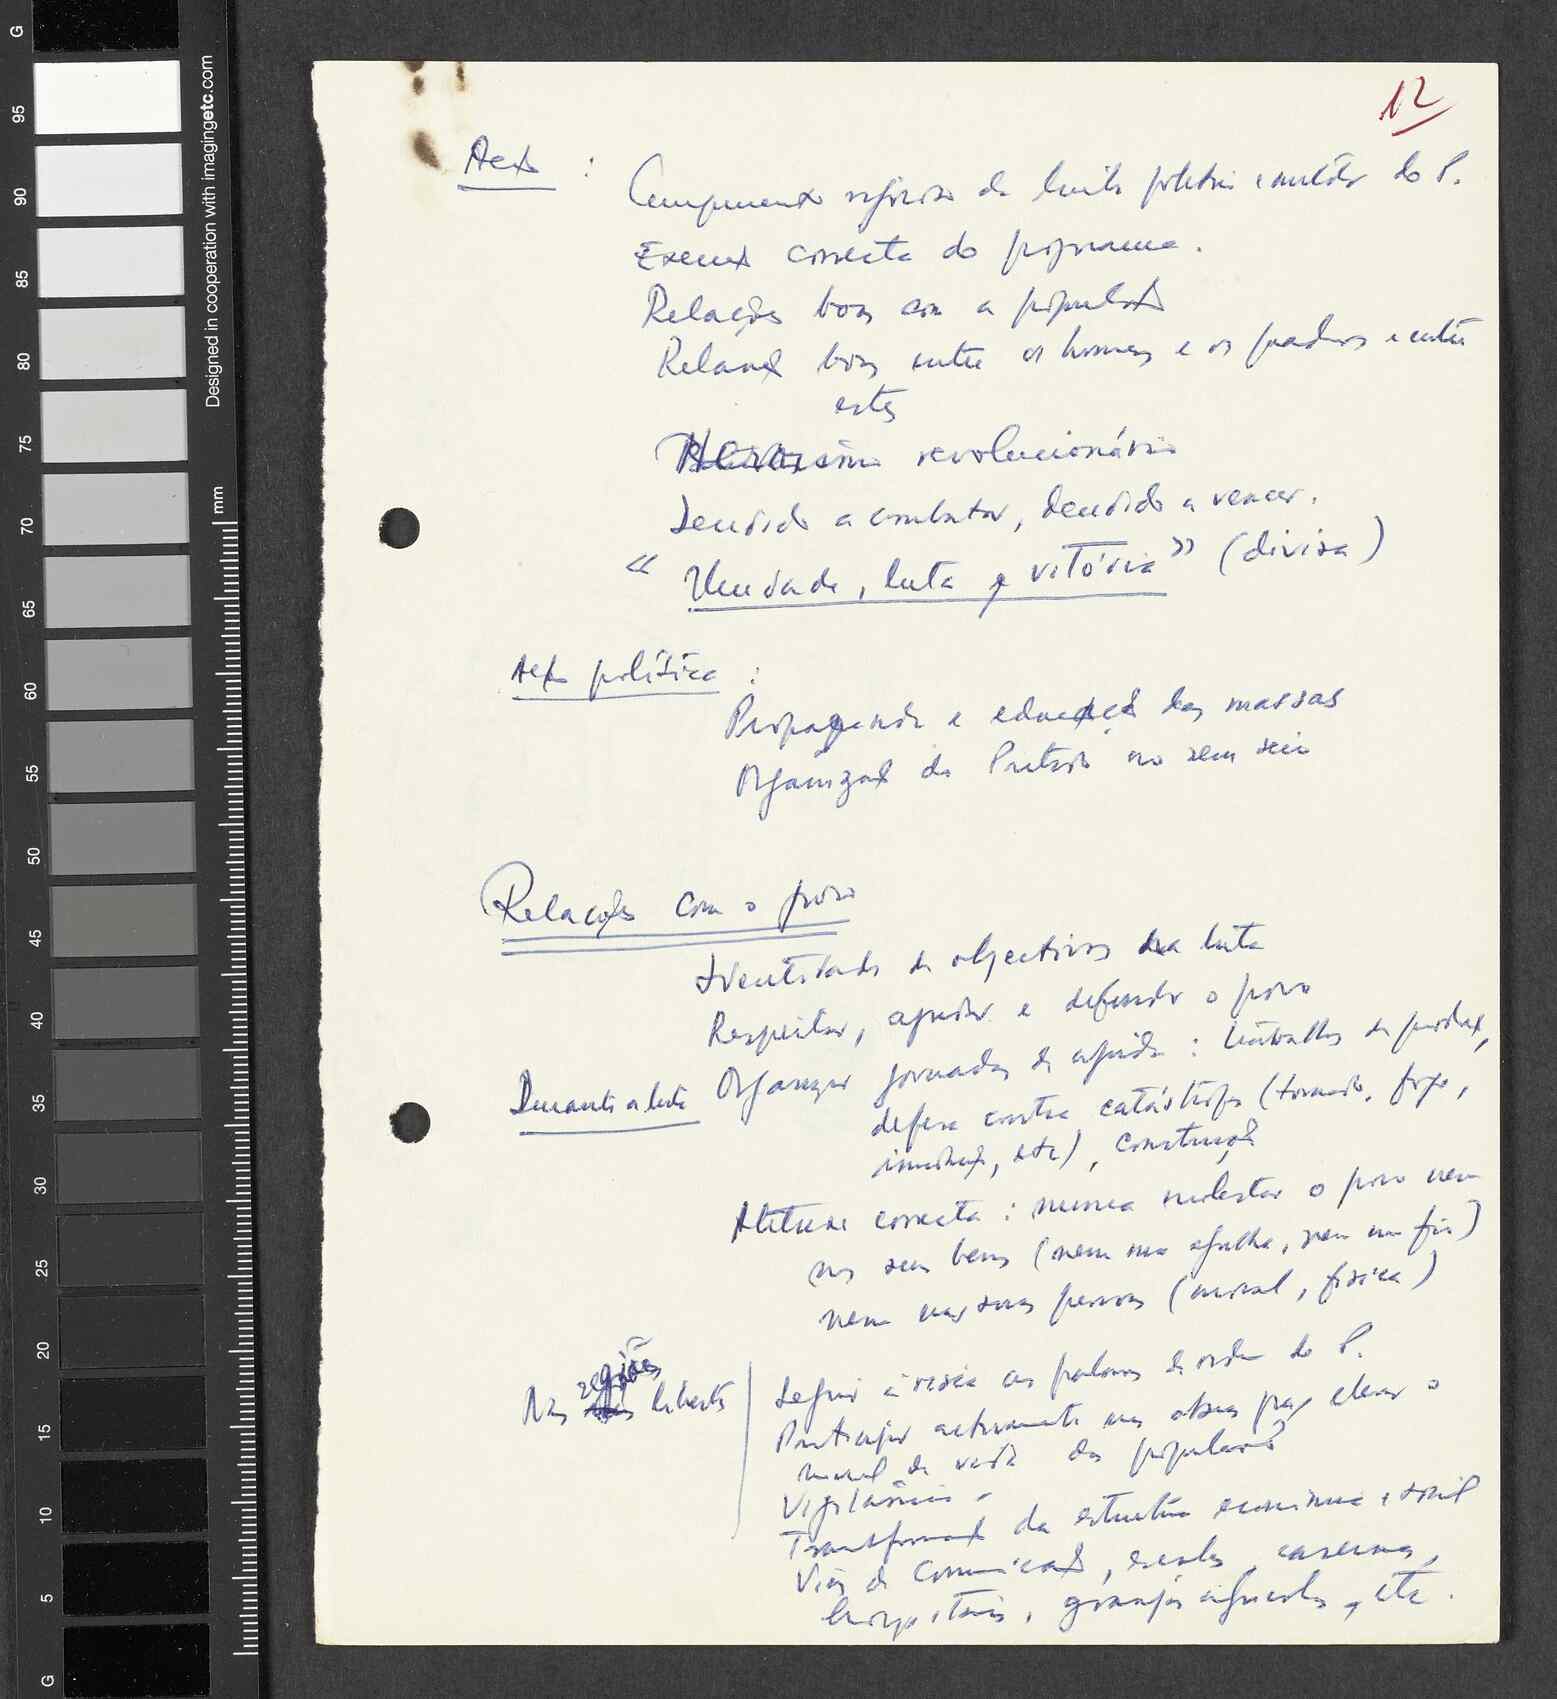 12
Acção :
Cumprimento rigoroso da linha política e militar do P.
Execução correcta do programa.
Relações boas com a população
Relações boas entre os homens e os quadros e entre
estes
Heroísmo revolucionário
Decidido a combater, decidido a vencer.
« Unidade, luta e vitória » (divisa)
Acção política :
Propaganda e educação das massas
Organização do Partido no seu seio
Relações com o povo
Identidade de objectivos da luta
Respeitar, ajudar e defender o povo
Durante a luta
Organizar jornadas de ajuda : trabalhos de produção,
defesa contra catástrofes (tornado, fogo,
inundação, etc), construção
Atitude correcta : nunca molestar o povo nem
nos seus bens (nem uma agulha, nem um fio)
nem nas suas pessoas (moral, física)
Nas regiões libertas
Seguir à risca as palavras de ordem do P.
Participar activamente nas obras para elevar o
nível de vida das populações
Vigilância
Transformação da estrutura económica e social
Vias de comunicação, escolas, casernas,
hospitais, granjas agrícolas, etc.
Designed in cooperation with imagingetc.com
mm
G
95
90
85
80
75
70
65
60
55
50
45
40
35
30
25
20
15
10
5
G